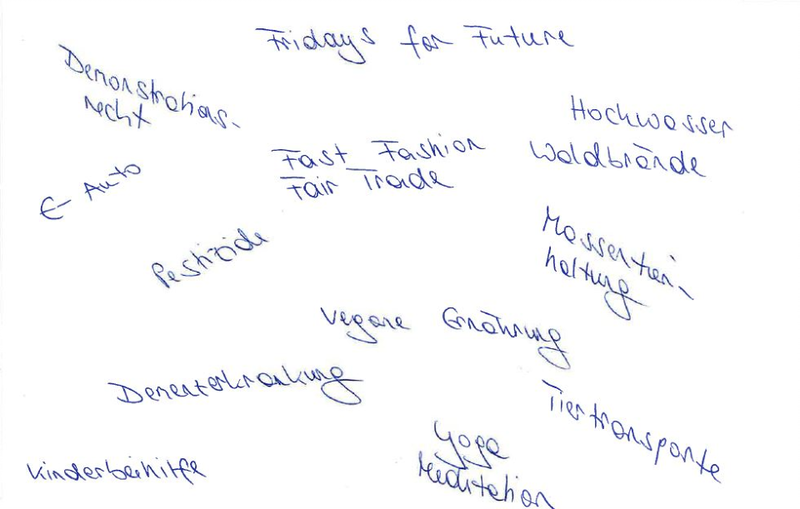 Fridays for Future
Demonstrations-
recht
Hochwasser
Waldbrände
Fast Fashion
Fair Trade
E-Auto
Massentier-
haltung
Pestizide
Vegane Ernährung
Demenzerkrankung
Tiertransporte
Yoga
Meditation
Kinderbeihilfe